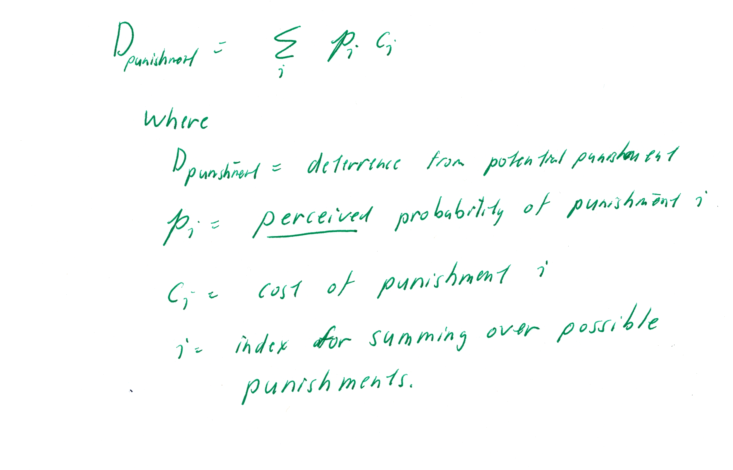 D punishment = Σ i p i c i
where
D punishment = deterrence from potential punishment
p i = perceived probability of punishment i
c i = cost of punishment i
i = index for summing over possible
punishments.